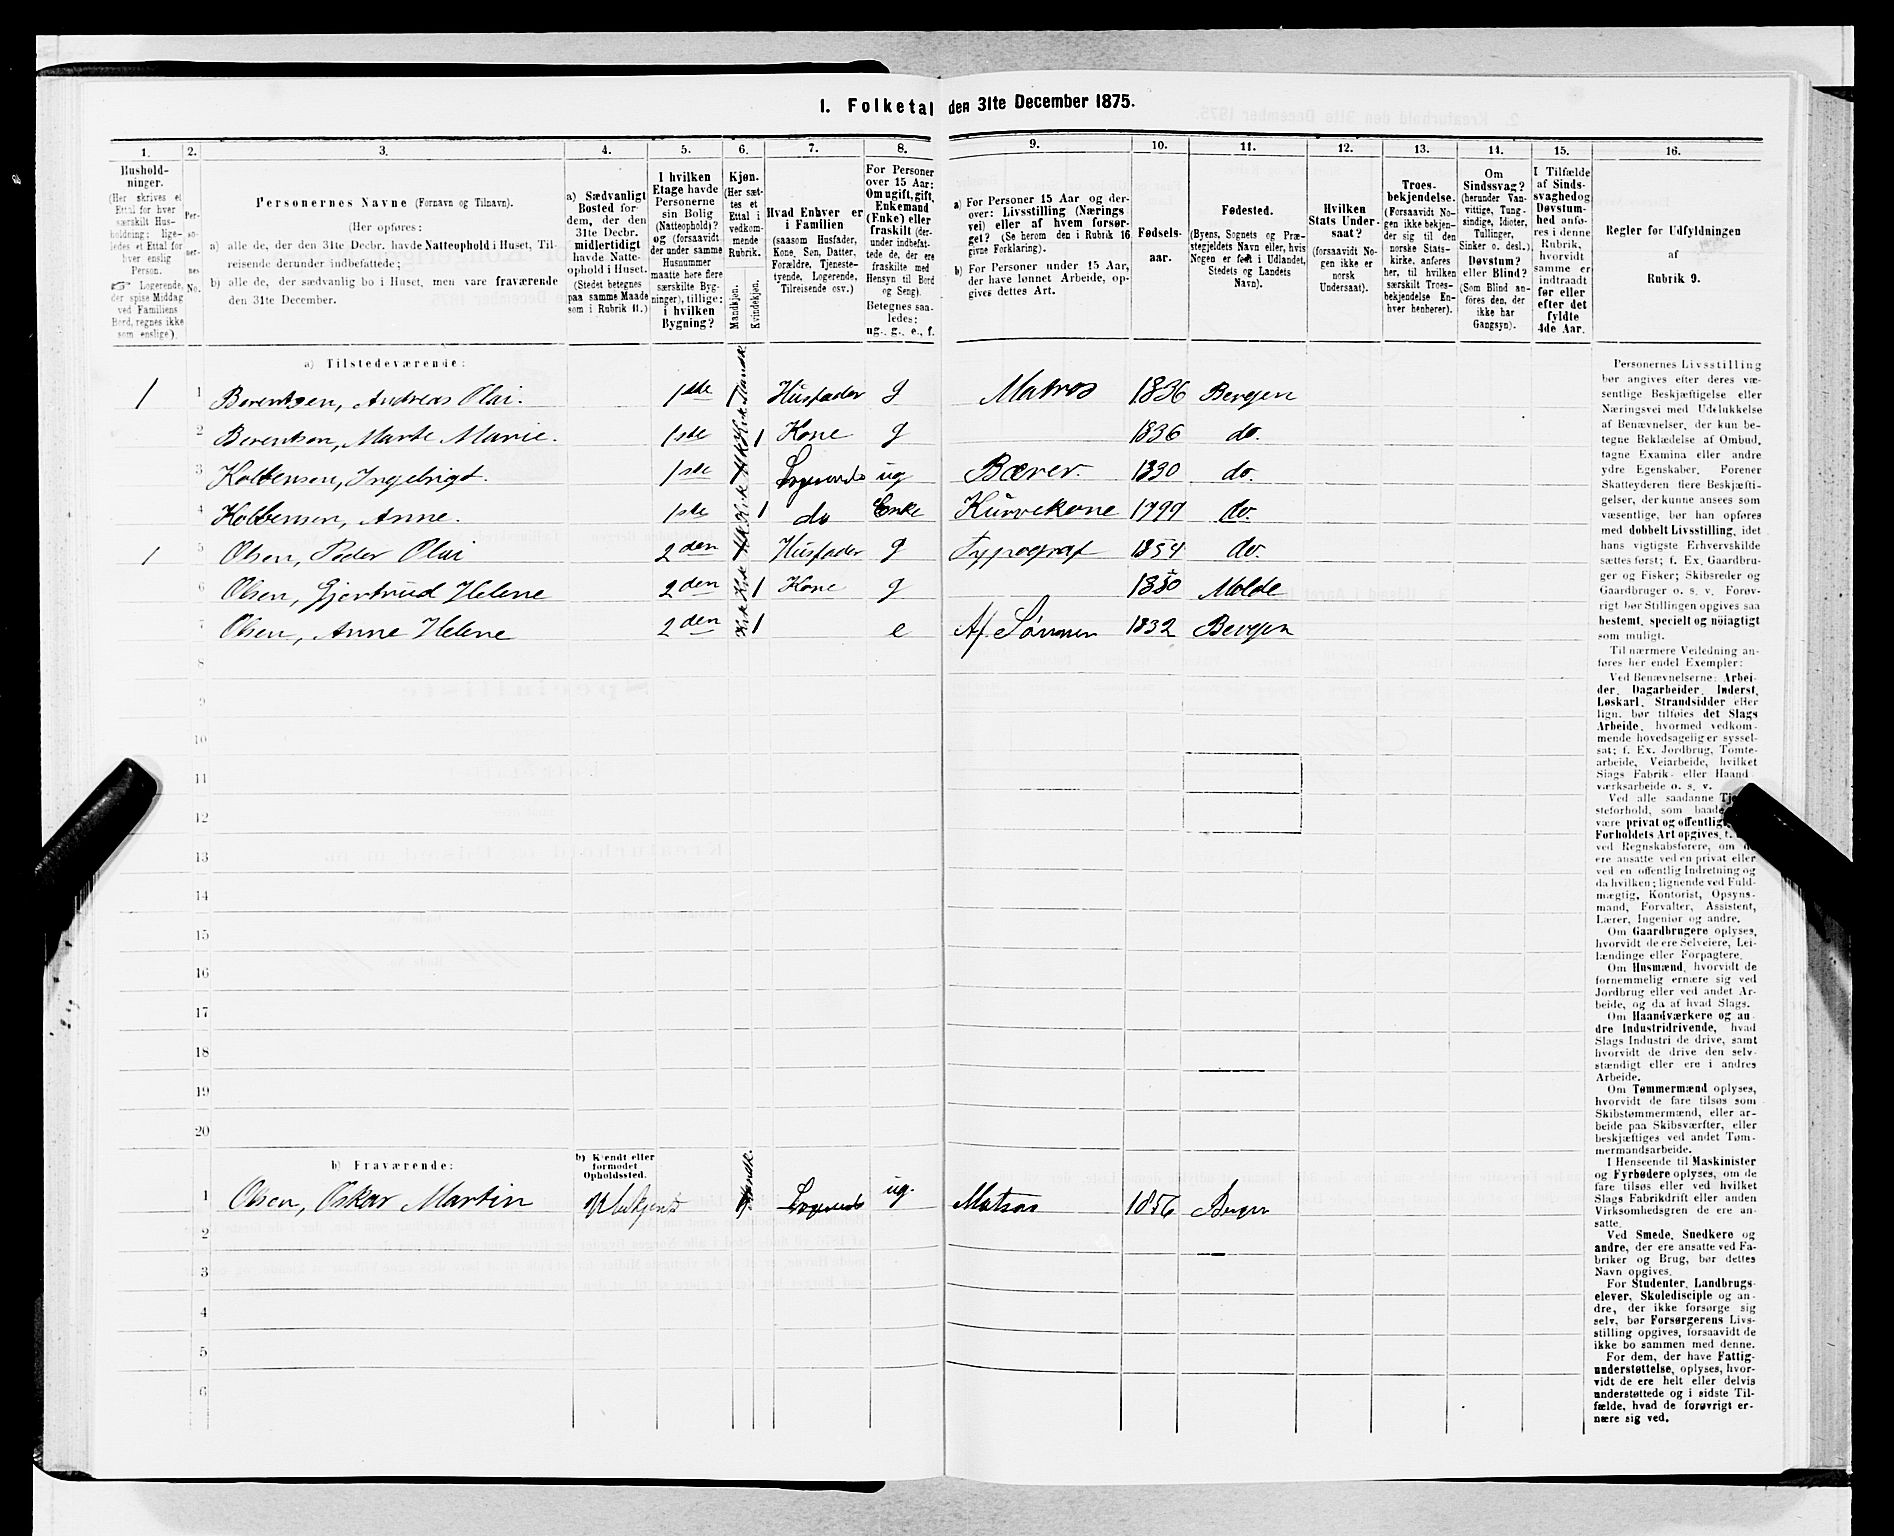 1. Folketal den 31te December 1875.
1. 2. 3. 4. 5. 6. 7. 8. 9. 10. 11. 12. 13. 14. 15. 16.
Hushold-
ninger.
(Her skrives et
Ettal for hver
særskilt Hus-
holdning; lige-
ledes et Ettal for
hver enslig
Person.
☞ Logerende,
der spise Middag
ved Familiens
Bord, regnes ikke
som enslige).
Per-
so-
ner-
nes
No.
Personernes Navne (Fornavn og Tilnavn).
(Her opføres:
a) alle de, der den 31te Decbr. havde Natteophold i Huset, Til-
reisende derunder indbefattede;
b) alle de, der sædvanlig bo i Huset, men vare fraværende
den 31te December.
a) Sædvanligt
Bosted for-
dem, der den
31te Decbr.
midlertidigt
havde Natte-
ophold i Huset.
(Stedet betegnes
paa samme Maade
som i Rubrik 11.)
I hvilken
Etage havde
Personerne
sin Bolig
(Natteophold)?
og (forsaavidt
der under samme
Husnummer
maatte høre flere
særskilte Byg-
ninger), tillige:
i hvilken
Bygning?
Kjøn.
(Her sæt-
tes et
Ettal i
vedkom-
mende
Rubrik.
Mandkjøn.
Kvindekjøn.
Hvad Enhver er
i Familien
(saasom Husfader,
Kone, Søn, Datter,
Forældre, Tjeneste-
tyende, Logerende,
Tilreisende osv.)
For Personer
over 15 Aar:
Om ugift, gift,
Enkemand
(Enke) eller
fraskilt (der-
under indbefat-
tede de, der ere
fraskilte med
Hensyn til Bord
og Seng).
Betegnes saa-
ledes:
ug., g., e., f.
a) For Personer 15 Aar og der-
over: Livsstilling (Nærings
vei) eller af hvem forsør-
get? (Se herom den i Rubrik 16
givne Forklaring).
b) For Personer under 15 Aar,
der have lønnet Arbeide, op-
gives dettes Art.
Fødsels-
aar.
Fødested.
(Byens, Sognets og Præ-
stegjeldets Navn eller, hvis
Nogen er født i Udlandet,
Stedets og Landets
Navn).
Hvilken
Stats Under-
saat?
(forsaavidt No-
gen ikke er
norsk
Undersaat).
Troes-
bekjendelse.
(Forsaavidt No-
gen ikke bekjen-
der sig til den
norske Stats-
kirke, anføres
her, til hvilken
særskilt Troes-
bekjendelse En-
hver henhører).
Om
Sindssvag?
(herunder Van-
vittige, Tung-
sindige, Idioter,
Tullinger,
Sinker o. desl.).
Døvstum?
eller Blind?
(Som Blind an-
føres den, der
ikke har
Gangsyn).
I Tilfælde
af Sinds-
svaghed og
Døvstum-
hed anfø-
res i denne
Rubrik,
hvorvidt
samme er
indtraadt
før eller
efter det
fyldte
4de Aar.
Regler for Udfyldningen
af
Rubrik 9.
a) Tilstedeværende:
1 1 Berentsen, Andreas Olai. 1ste Mandk. Husfader g Matros 1836 Bergen
2 Berentsen, Marte Marie. 1ste 1 Kone g 1836 do.
3 Kolbensen, Ingebrigt. 1ste Logerende ug Bærer. 1830 do.
4 Kolbensen, Anne. 1ste 1 do Enke Kurvekone 1799 do.
1 5 Olsen, Peder Olai 2den Husfader g Typograf 1854 do.
6 Olsen, Gjertrud Helene 2den 1 Kone g 1850 Molde
7 Olsen, Anne Helene 2den 1 e Af Sønnen 1832 Bergen
8
9
10
11
12
13
14
15
16
17
18
19
20
b) Fraværende:
b) Kjendt eller
formodet
Opholdssted.
1 Olsen, Oskar Martin Ubekjendt Mandk. Logerende ug. Matros 1856 Bergen
2
3
4
5
6
Personernes Livsstilling
bør angives efter deres væ-
sentlige Beskjæftigelse eller
Næringsvei med Udelukkelse
af Benævnelser, der kun be-
tegne Beklædelse af Ombud,
tagne Examina eller andre
ydre Egenskaber. Forener
Skatteyderen flere Beskjæfti-
gelser, der kunne ansees som
væsentlige, bør han opføres
med dobbelt Livsstilling, idet
hans vigtigste Erhvervskilde
sættes først; f. Ex. Gaardbru-
ger og Fisker; Skibsreder og
Gaardbruger o. s. v. Forøv-
rigt bør Stillingen opgives saa
bestemt, specielt og nöiagtigt
som muligt.
Til nærmere Veiledning an-
føres her endel Exempler:
Ved Benævnelserne: Arbei-
der, Dagarbeider, Inderst,
Løskarl, Strandsidder eller
lign. bør tilføies det Slags
Arbeide, hvormed vedkom-
mende hovedsagelig er syssel-
sat; f. Ex. Jordbrug, Tomte-
arbeide, Veiarbeide, hvilket
Slags Fabrik- eller Haand-
værksarbeide o. s. v.
Ved alle saadanne
steforhold, som baade
være privat og offentlig
Forholdets Art opgives,
ved Regnskabsførere, om
ere ansatte ved en privat eller
ved en offentlig Indretning og
da hvilken; lignende ved Fuld-
mægtig, Kontorist, Opsyns-
mand, Forvalter, Assistent,
Lærer, Ingeniør og andre.
Om Gaardbrugere oplyses,
hvorvidt de ere Selveiere, Lei-
lændinge eller Forpagtere.
Om Husmænd, hvorvidt de
fornemmelig ernære sig ved
Jordbrug eller ved andet Ar-
beide, og da af hvad Slags.
Om Haandværkere og an-
dre Industridrivende, hvad
Slags Industri de drive, samt
hvorvidt de drive den selv-
stændigt eller ere i andres
Arbeide.
Om Tømmermænd oplyses,
hvorvidt de fare tilsøs som
Skibstømmermænd, eller ar-
beide paa Skibsværfter, eller
beskjæftiges ved andet Tøm-
mermandsarbeide.
I Henseende til Maskinister
og Fyrbødere oplyses, om de
fare tilsøs eller ved hvilket
Slags Fabrikdrift eller anden
Virksomhedsgren de ere an-
satte.
Ved Smede, Snedkere og
andre, der ere ansatte ved Fa-
briker og Brug, bør dettes
Navn opgives.
For Studenter, Landbrugs-
elever, Skoledisciple og an-
dre, der ikke forsørge sig
selv, bør Forsørgerens Livs-
stilling opgives, forsaavidt de
ikke bo sammen med denne.
For dem, der have Fattig-
understøttelse, oplyses, hvor-
vidt de ere helt eller delvis
understøttede og i sidste Til-
fælde, hvad de forøvrigt er-
nære sig ved.